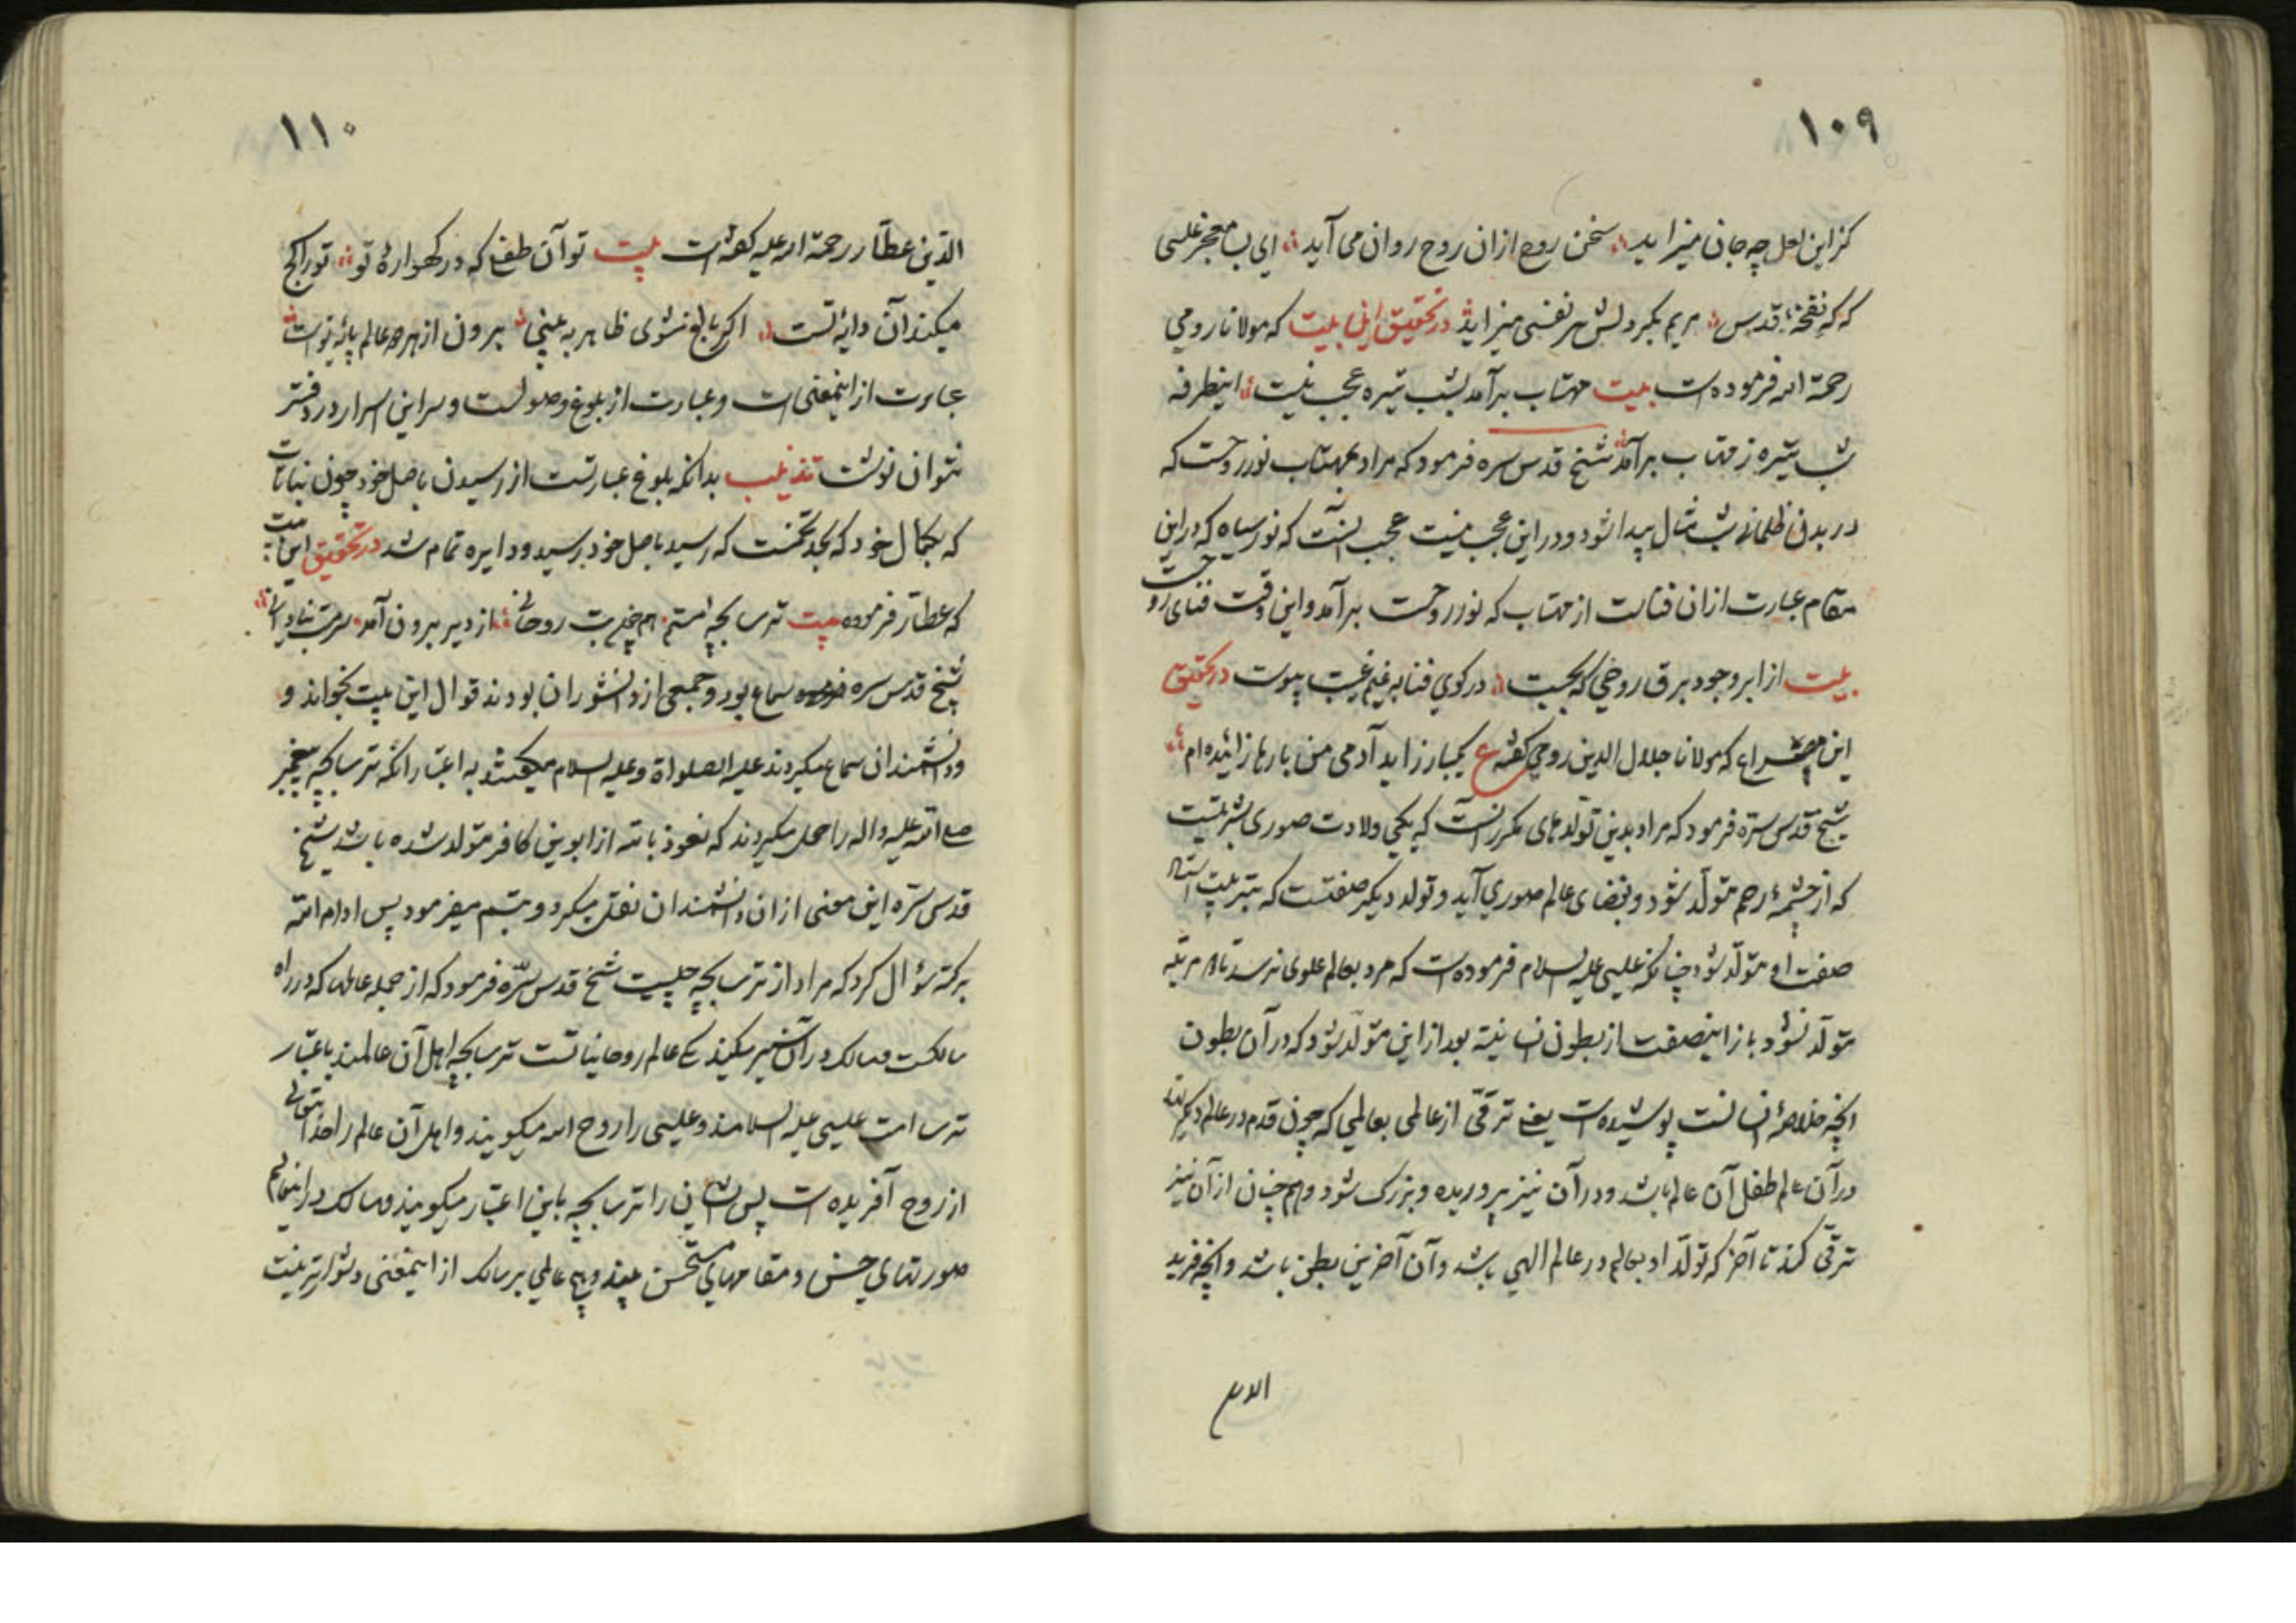 ۱۰۹
کزاین لعل چه جان میزاید سخن روح ازان روح روان می آید ای لب معجز عیسی
که نفخهٔ قدس مریم بکر دلش هر نفسی میزاید در تحقیق این بیت که مولانا رومی
رحمة الله فرموده است بیت مهتاب برآمد بشب تیره عجب نیست اینطرفه
شب تیره ز مهتاب برآمد شیخ قدس سره فرمود که مراد بمهتاب نور روحست که
در بدن ظلمانی شب مثال پیدا شود و در این عجب نیست عجب اینست که نور سیاه که در این
مقام عبارت ازان فناست از مهتاب که نور روحست برآمد و این وقت فنای روحست
بیت از ابر وجود برق روخی که بجست در کوی فنا به غیم غیب پیوست در تحقیق
این مصراع که مولانا جلال الدین رومی گفته ع یکبار زاید آدمی من بارها زائیده ام
شیخ قدس سره فرمود که مراد بدین تولدهای مکرر آنست که یکی ولادت صوری بشریتست
که از چشمهٔ رحم متولد شود و بفضای عالم صوری آید و تولد دیگر صفتست که بتربیت
صفت او متولد شود چنانکه عیسی علیه السلام فرموده است که مرد بعالم علوی نرسد تا مرتبه
متولد نشود باز اینصفت از بطون انسانیة بعد از این متولد شود که در آن بطون
آنچه خلاصهٔ انسانست پوشیده است یعنی ترقی از عالمی بعالمی که چون قدم در عالم دیگر نهد
در آن عالم طفل آن عالم باشد و در آن نیز پروریده و بزرگ شود و هم چنان از آن نیز
ترقی کند تا آخر که تولد او بعالم در عالم الهی باشد و آن آخرین بطن باشد و آنچه فرید
الدین
۱۱۰
الدین عطار رحمة الله علیه گفته است بیت تو آن طفلی که در گهوارهٔ تو تو را کج
میکند آن دایهٔ تست اگر بالغ شوی ظاهر به بینی برون از هر دو عالم پایهٔ تو است
عبارت از اینمعنی است و عبارت از بلوغ وصولست و سر این اسرار در دفتر
نتوان نوشت تذنیب بدانکه بلوغ عبارتست از رسیدن باصل خود چون نباتات
که بکمال خود که بحد تخمست که رسید باصل خود برسید و دایره تمام شد در تحقیق این بیت
که عطار فرموده بیت ترسا بچهٔ لستم هم چون بت روحانی از دیر برون آمد سرمست بنادانی
شیخ قدس سره سماع بود و جمعی از دانشوران بودند قوال این بیت بخواند و
دانشمندان سماع میکردند علیه الصلواة و علیه السلام میگفتند به اعتبار آنکه ترسا بچه پیغمبر
صلی الله علیه و اله را حمل میکردند که نعوذ بالله از ابوین کافر متولد شده باشد شیخ
قدس سره این معنی ازان دانشمندان نقل میکرد و تبسم میفرمود پس ادام الله
برکته سؤال کرد که مراد از ترسا بچه چیست شیخ قدس سره فرمود که از جمله عالمها که در راه
سالکست و سالک در آن سیر میکند یکی عالم روحانیاتست ترسا بچه اهل آن عالمند باعتبار
ترسا امت عیسی علیه السلامند و عیسی را روح الله میگویند و اهل آن عالم را خدایتعالی
از روح آفریده است پس ایشان را ترسا بچه باین اعتبار میگویند و سالک در اینعالم
صورتهای حسن و مقامهای مستحسن بیند و هیچ عالمی بر سالک از اینمعنی دشوارتر نیست